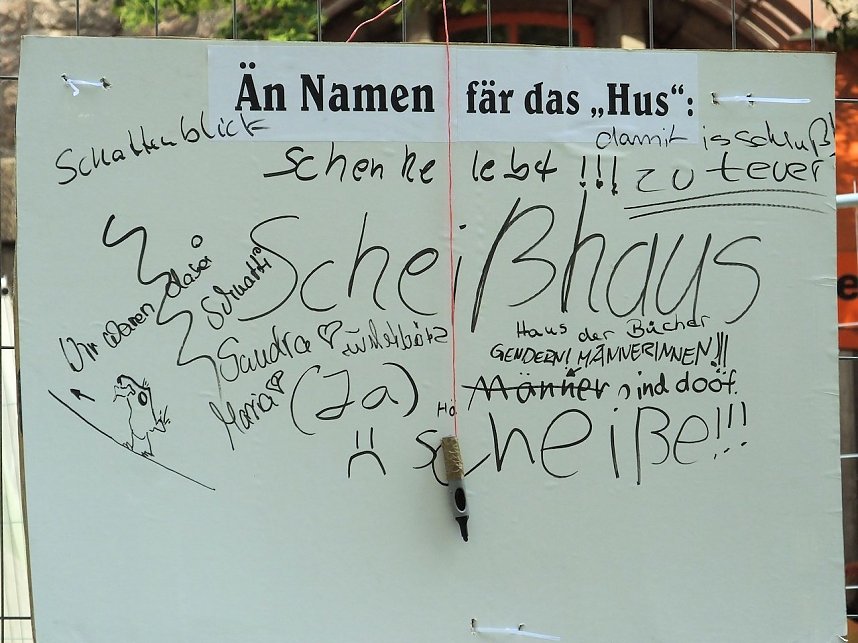 Än Namen fär das „Hus“:
Schattenblick
damit is schluß!
Schenke lebt !!! zu teuer
Scheißhaus
Wir waren dabei
Schatti
Sandra ♡
Maria ♡
(Ja)
Haus der Bücher
GENDERN! MÄNNERINNEN!!!
Männer sind doof.
Hä
Scheiße!!!